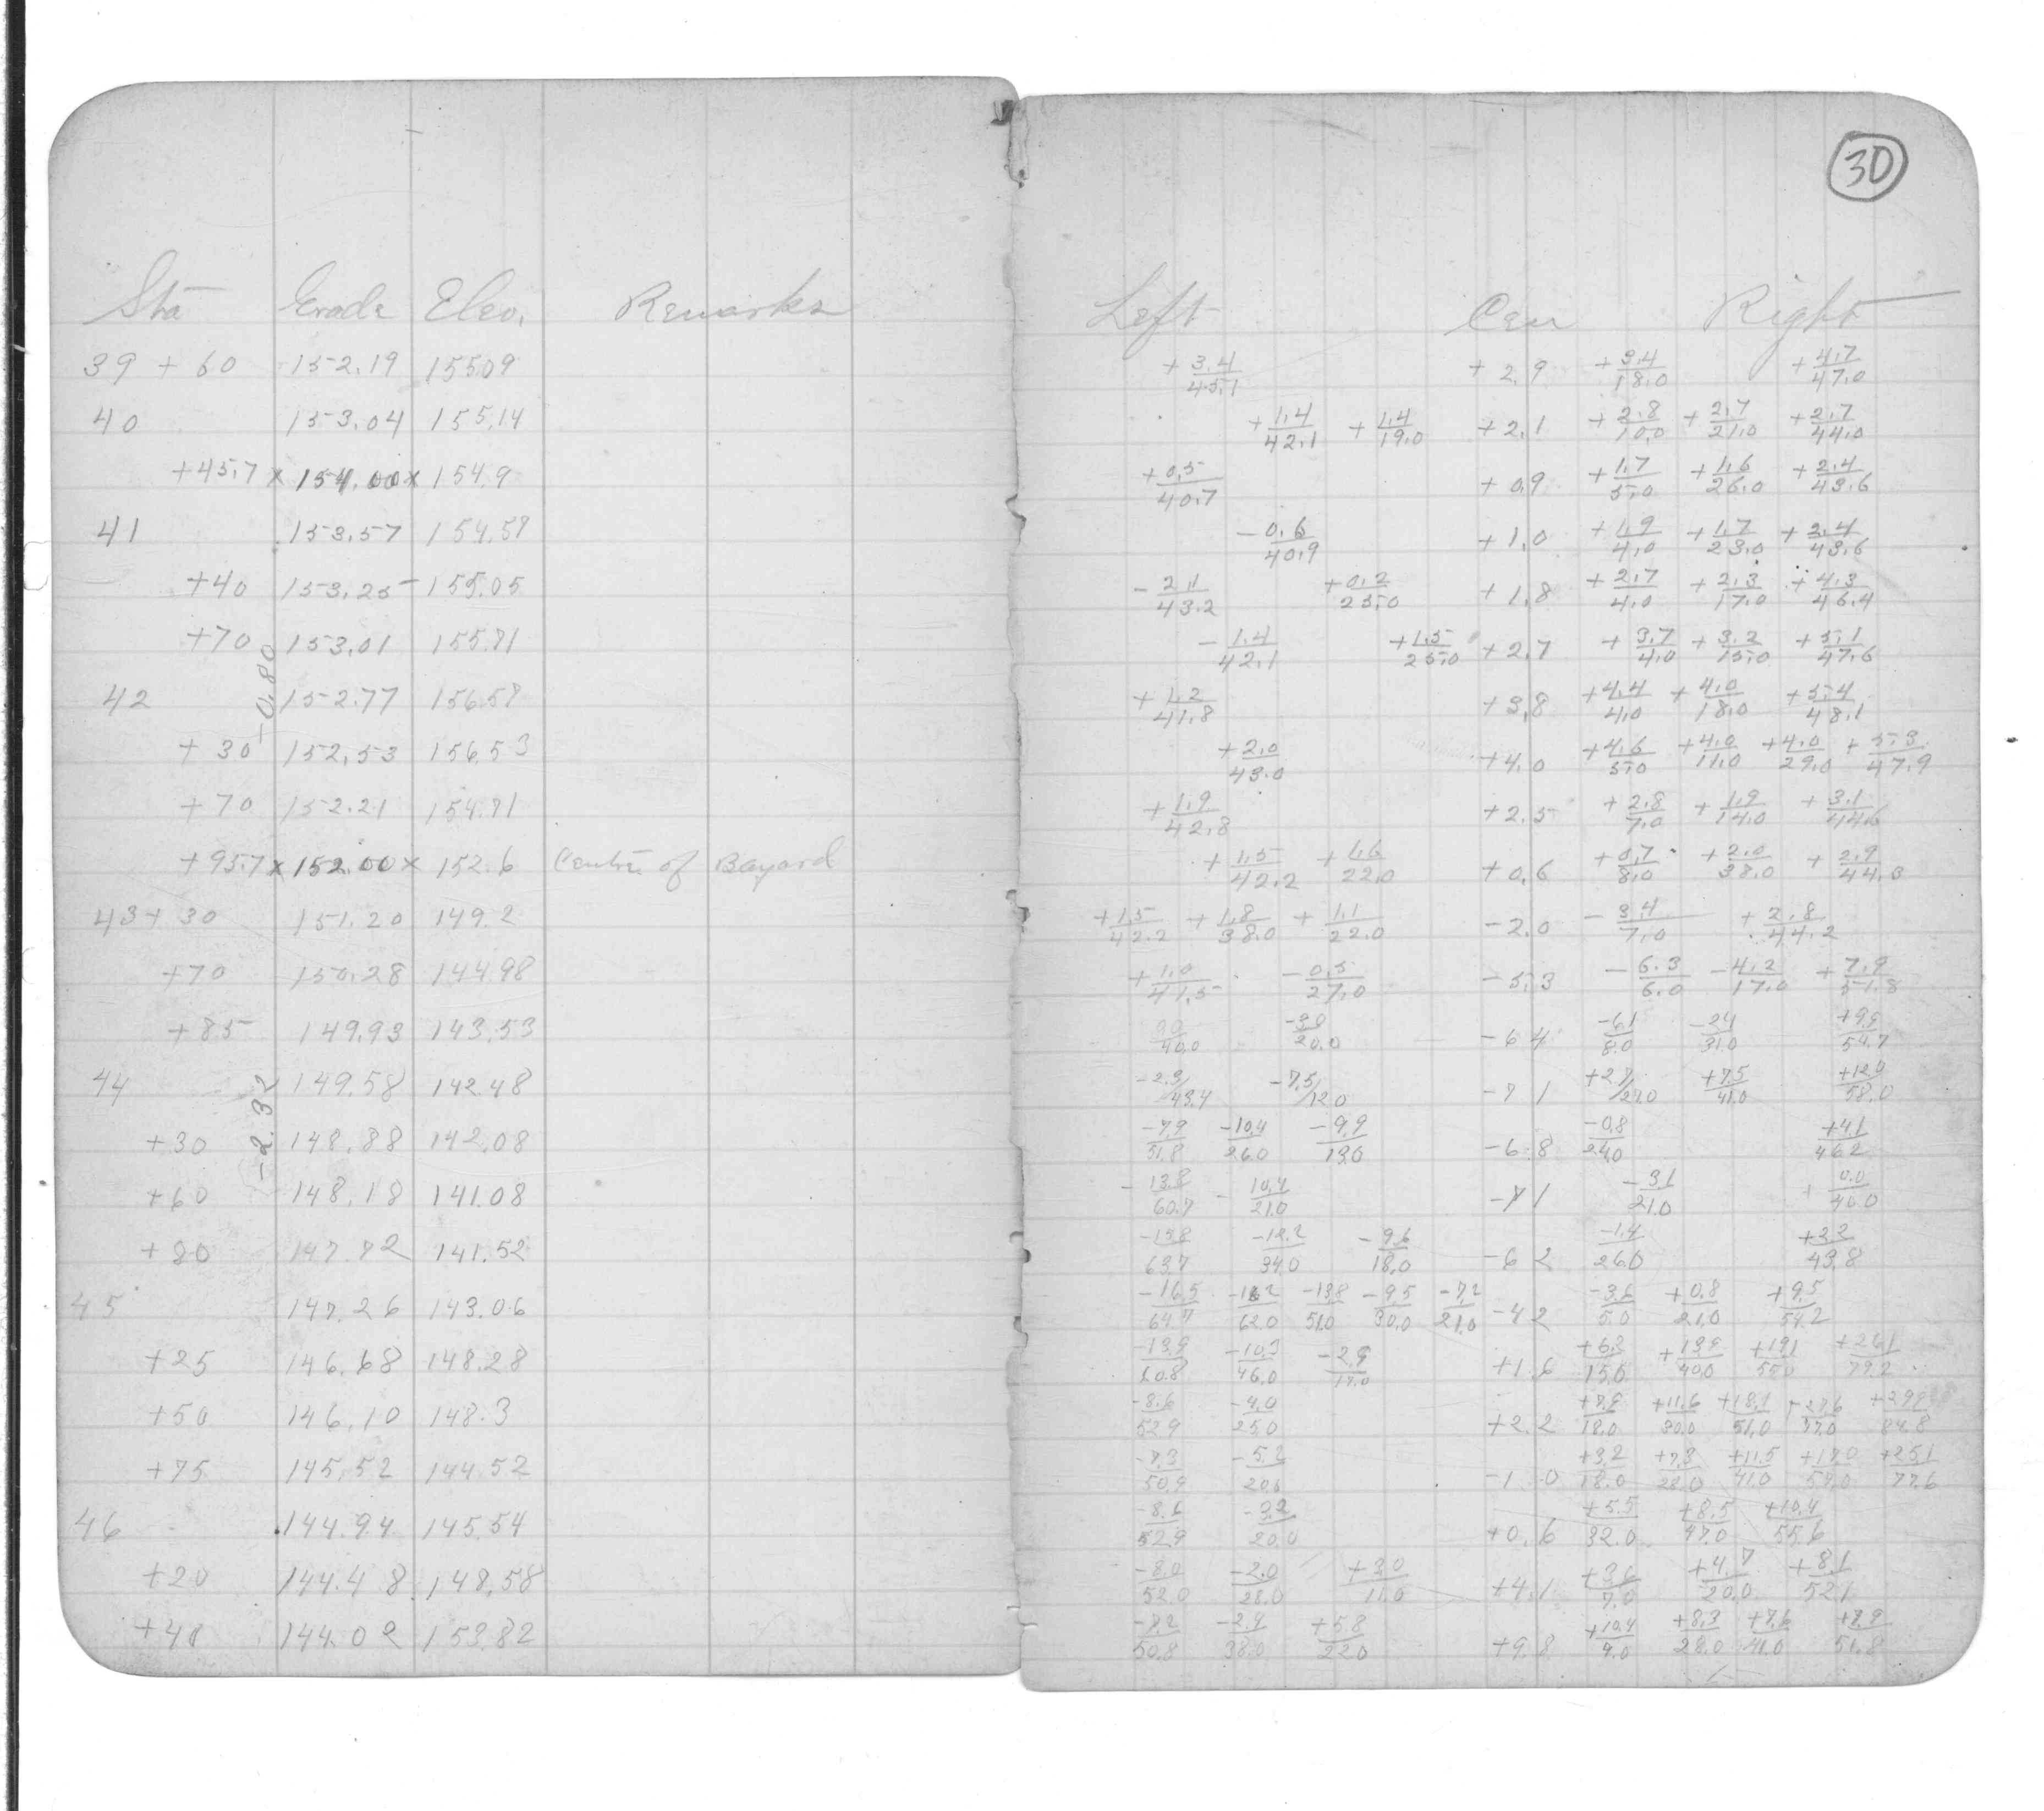 30
Sta Grade Elev. Remarks Left Cen Right
39 + 60 152.19 155.09 +3.4/45.1 +2.9 +3.4/18.0 +4.7/47.0
40 153.04 155.14 +1.4/42.1 +1.4/19.0 +2.1 +2.8/10.0 +2.7/21.0 +2.7/44.0
+45.7 x 154.00 x 154.9 +0.5/40.7 +0.9 +1.7/5.0 +1.6/26.0 +2.4/43.6
41 153.57 154.57 -0.6/40.9 +1.0 +1.9/4.0 +1.7/23.0 +2.4/43.6
+40 153.25 155.05 -2.1/43.2 +0.2/25.0 +1.8 +2.7/4.0 +2.3/17.0 +4.3/46.4
+70 153.01 155.71 -1.4/42.1 +1.5/25.0 +2.7 +3.7/4.0 +3.2/15.0 +5.1/47.6
-0.80
42 152.77 156.57 +1.2/41.8 +3.8 +4.4/4.0 +4.0/18.0 +5.4/48.1
+30 152.53 156.53 +2.0/43.0 +4.0 +4.6/5.0 +4.0/11.0 +4.0/29.0 +5.3/47.9
+70 152.21 154.71 +1.9/42.8 +2.5 +2.8/7.0 +1.9/14.0 +3.1/44.6
+95.7 x 152.00 x 152.6 Centre of Bayard +1.5/42.2 +1.6/22.0 +0.6 +0.7/8.0 +2.0/38.0 +2.9/44.3
43 + 30 151.20 149.2 +1.5/42.2 +1.8/38.0 +1.1/22.0 -2.0 -3.4/7.0 +2.8/44.2
+70 150.28 144.98 +1.0/41.5 -0.5/27.0 -5.3 -6.3/6.0 -4.2/17.0 +7.9/51.8
+85 149.93 143.53 0.0/40.0 -3.0/20.0 -6.4 -6.1/8.0 -2.4/31.0 +9.9/54.7
44 149.58 142.48 -2.3/43.4 -7.5/12.0 -7.1 +2.7/27.0 +7.5/41.0 +12.0/58.0
-2.32
+30 148.88 142.08 -7.9/51.8 -10.4/26.0 -9.9/13.0 -6.8 -0.8/24.0 +4.1/46.2
+60 148.18 141.08 -13.8/60.7 -10.4/21.0 -7.1 -3.1/21.0 +0.0/40.0
+80 147.72 141.52 -15.8/63.7 -12.2/34.0 -9.6/18.0 -6.2 -1.4/26.0 +2.2/43.8
45 147.26 143.06 -16.5/64.7 -16.2/62.0 -13.8/51.0 -9.5/30.0 -7.2/21.0 -4.2 -3.6/5.0 +0.8/21.0 +9.5/54.2
+25 146.68 148.28 -13.9/60.8 -10.3/46.0 -2.9/17.0 +1.6 +6.3/15.0 +13.9/40.0 +19.1/55.0 +26.1/79.2
+50 146.10 148.3 -8.6/52.9 -4.0/25.0 +2.2 +7.9/18.0 +11.6/30.0 +18.1/51.0 +27.6 +29.9/84.8
+75 145.52 144.52 -7.3/50.9 -5.2/20.0 -1.0 +3.2/18.0 +7.3/28.0 +11.5/41.0 +17.0/57.0 +25.1/77.6
46 144.94 145.54 -8.6/52.9 -3.2/20.0 +0.6 +5.5/32.0 +8.5/47.0 +10.4/55.6
+20 144.48 148.58 -8.0/52.0 -2.0/28.0 +3.0/11.0 +4.1 +3.6/7.0 +4.7/20.0 +8.1/52.1
+40 144.02 153.82 -7.2/50.8 -2.9/38.0 +5.8/22.0 +9.8 +10.4/4.0 +8.3/28.0 +7.6/41.0 +7.9/51.8